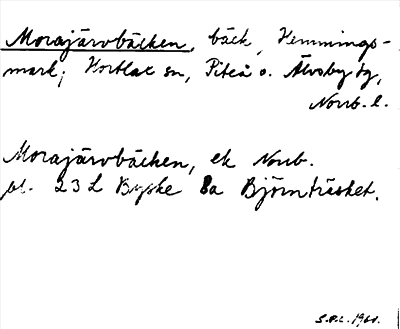 Morajärvbäcken, bäck, Hemmings-
mark, Hortlax sn, Piteå o. Älvsby tg,
Norrb. l.
Morajärvbäcken, ek Norrb.
bl. 23 L Byske 8a Björnträsket.
S.P.L. 1961.